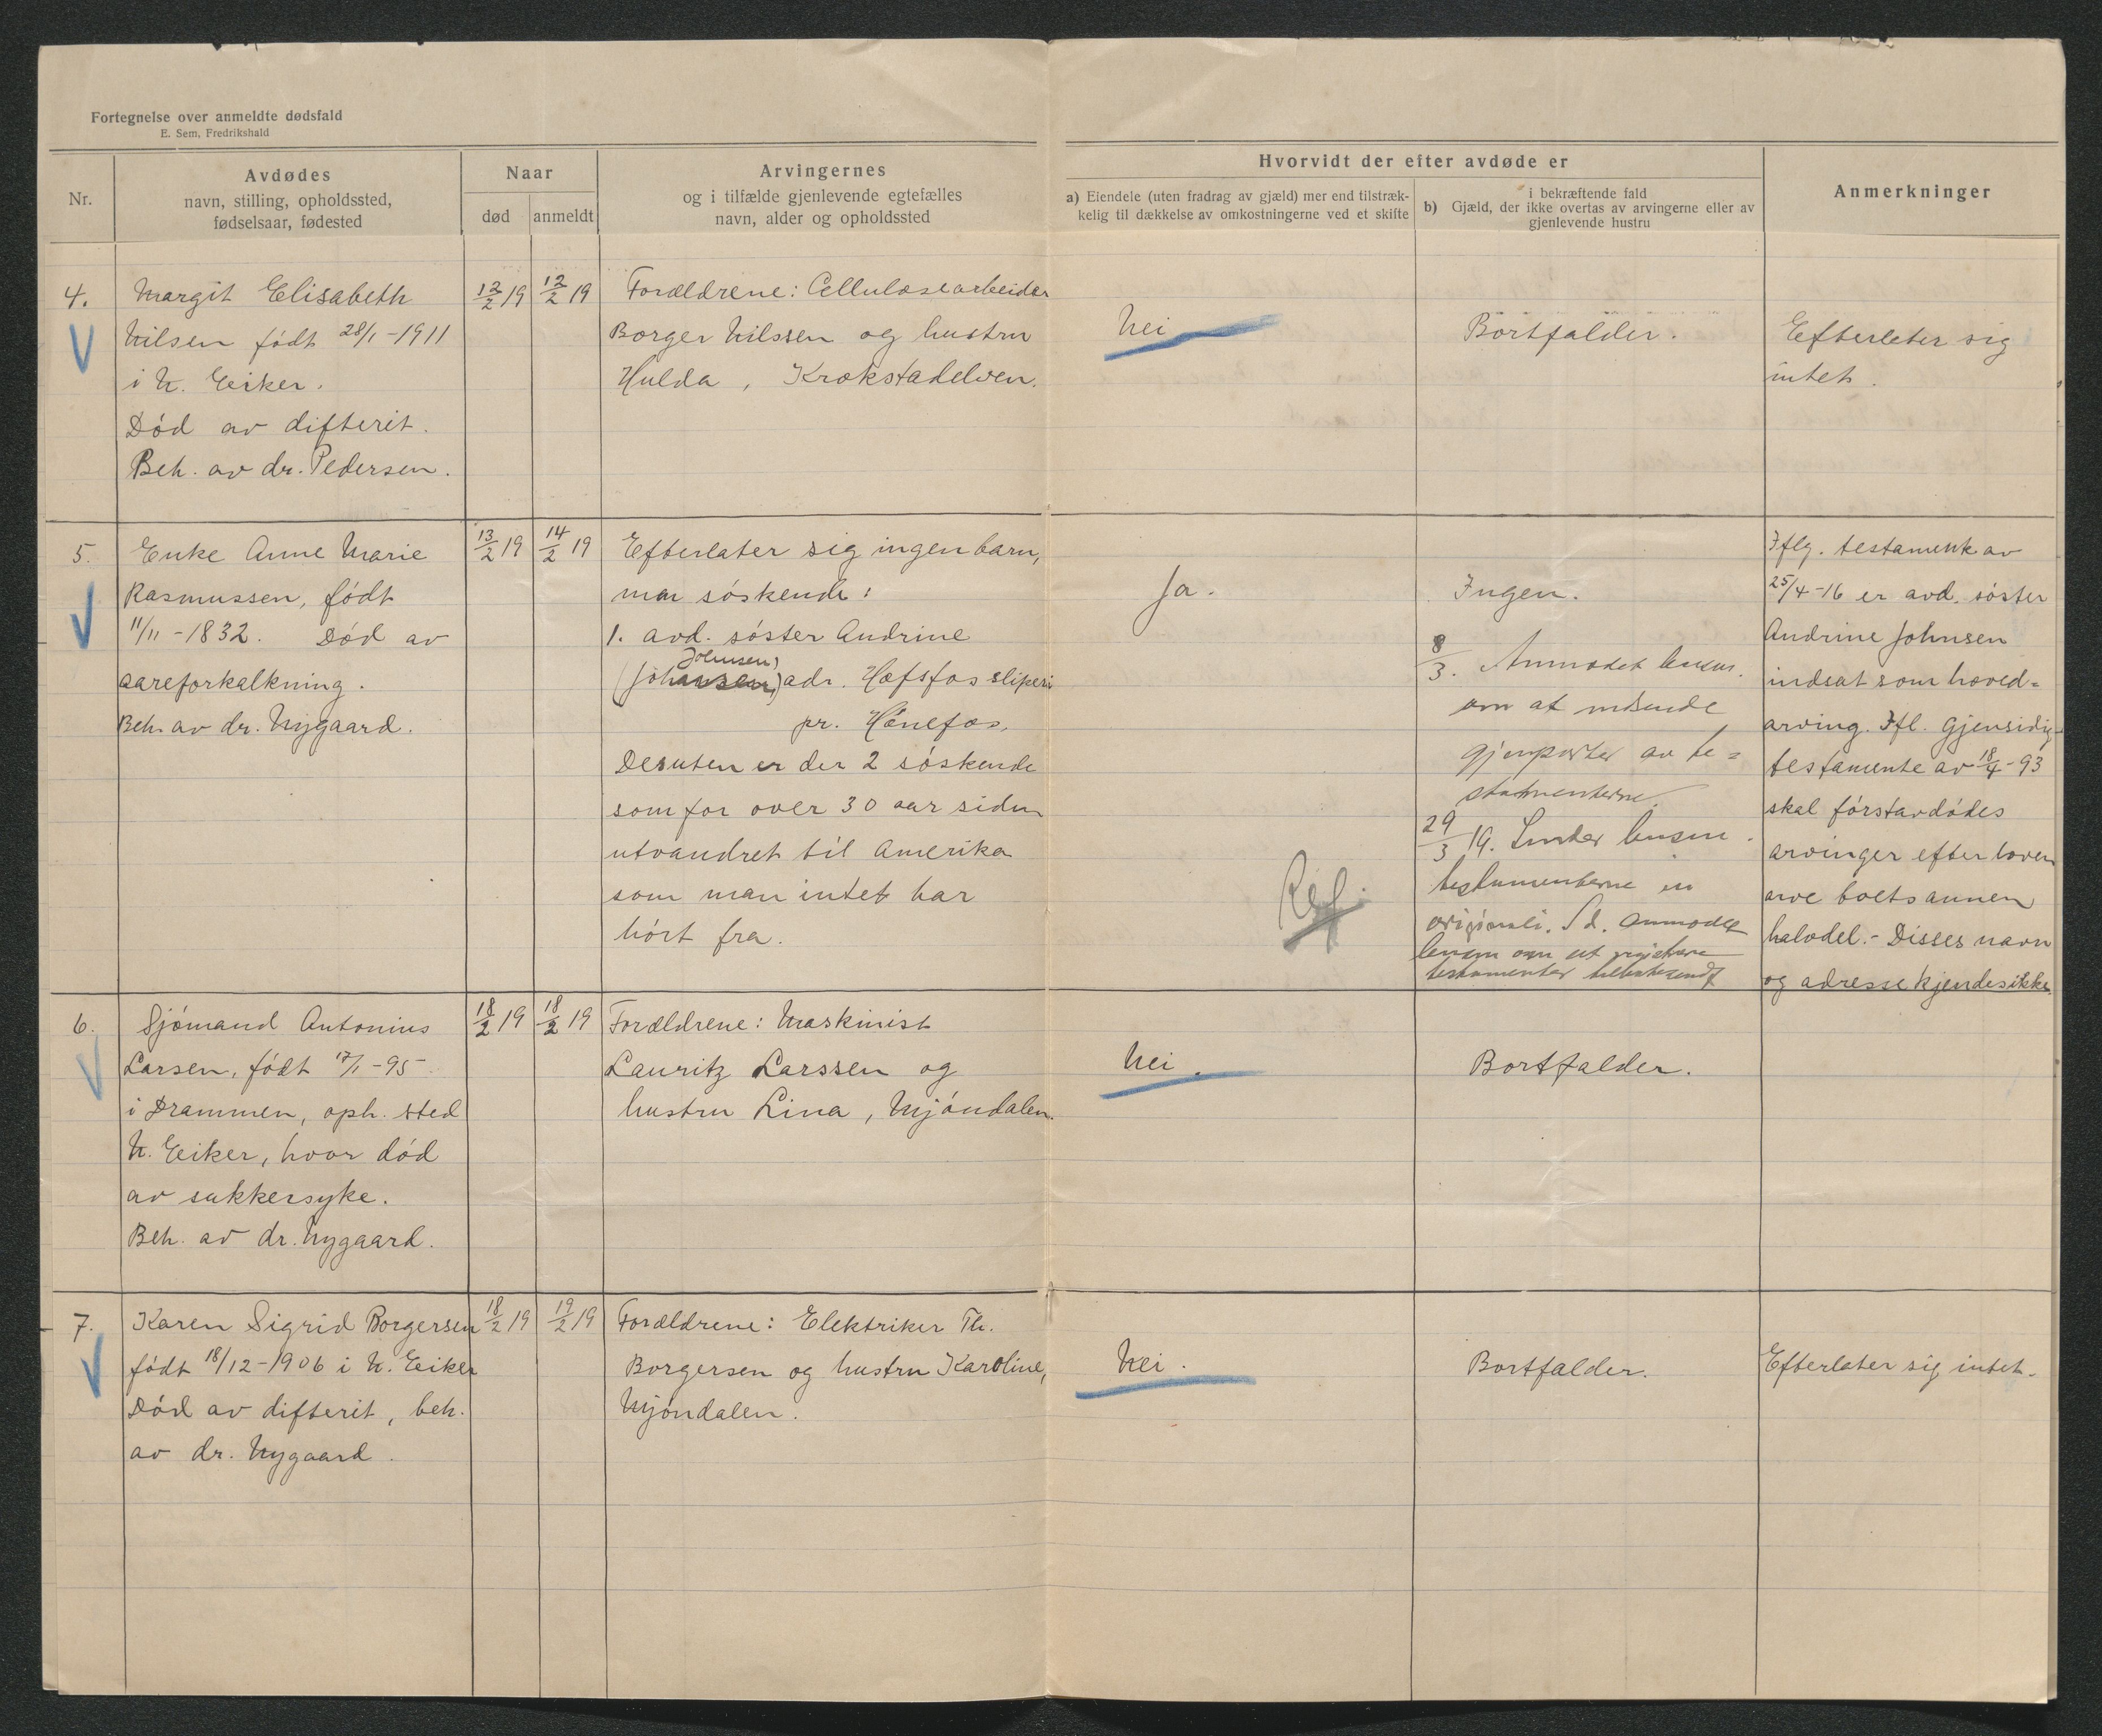 Fortegnelse over anmeldte dødsfald
E. Sem, Fredrikshald
Nr.
Avdødes
navn, stilling, opholdssted,
fødselsaar, fødested
Naar
død
anmeldt
Arvingernes
og i tilfælde gjenlevende egtefælles
navn, alder og opholdssted
Hvorvidt der efter avdøde er
a) Eiendele (uten fradrag av gjæld) mer end tilstræk-
kelig til dækkelse av omkostningerne ved et skifte
i bekræftende fald
b) Gjæld, der ikke overtas av arvingerne eller av
gjenlevende hustru
Anmerkninger
4.
Margit Elisabeth
Nilsen født 28/1-1911
i N. Eiker.
Død av difterit.
Beh. av dr. Pedersen.
12/2 19
12/2 19
Forældrene: Cellulosearbeider
Borger Nilssen og hustru
Hulda, Krokstadelven.
Nei
Bortfalder.
Efterlater sig
intet.
5.
Enke Anne Marie
Rasmussen, født
11/11-1832. Død av
aareforkalkning.
Beh. av dr. Nygaard.
13/2 19
14/2 19
Efterlater sig ingen barn,
men søskende:
1. avd. søster Andrine
Johnsen,
(Johansen) adr. Hofsfos sliperi
pr. Hønefos.
Desuten er der 2 søskende
som for over 30 aar siden
utvandret til Amerika
som man intet har
hørt fra.
Ja.
Ref.
Ingen.
8/3. Anmodet lensm.
om at indsende
gjenparter av te=
stamenterne.
29/3 19. Sender lensm.
testamenterne in
originali. S.d. anmodes
lensm om at
testamenter
Iflg. testamente av
25/4-16 er avd. søster
Andrine Johnsen
indsat som hoved=
arving. Ifl. gjensidig
testamente av 18/4-93
skal førstavdødes
arvinger efter loven
arve boets annen
halvdel.- Disses navn
og adresse kjendes ikke.
6.
Sjømand Antonius
Larsen, født 17/1-95
i Drammen, oph. sted
N. Eiker, hvor død
av sukkersyke.
Beh. av dr. Nygaard.
18/2 19
18/2 19
Forældrene: Maskinist
Lauritz Larssen og
hustru Lina, Mjøndalen.
Nei.
Bortfalder.
7.
Karen Sigrid Borgersen
født 18/12-1906 i N. Eiker
Død av difterit, beh.
av dr. Nygaard.
18/2 19
19/2 19
Forældrene: Elektriker Th.
Borgersen og hustru Karoline,
Mjøndalen.
Nei.
Bortfalder.
Efterlater sig intet.